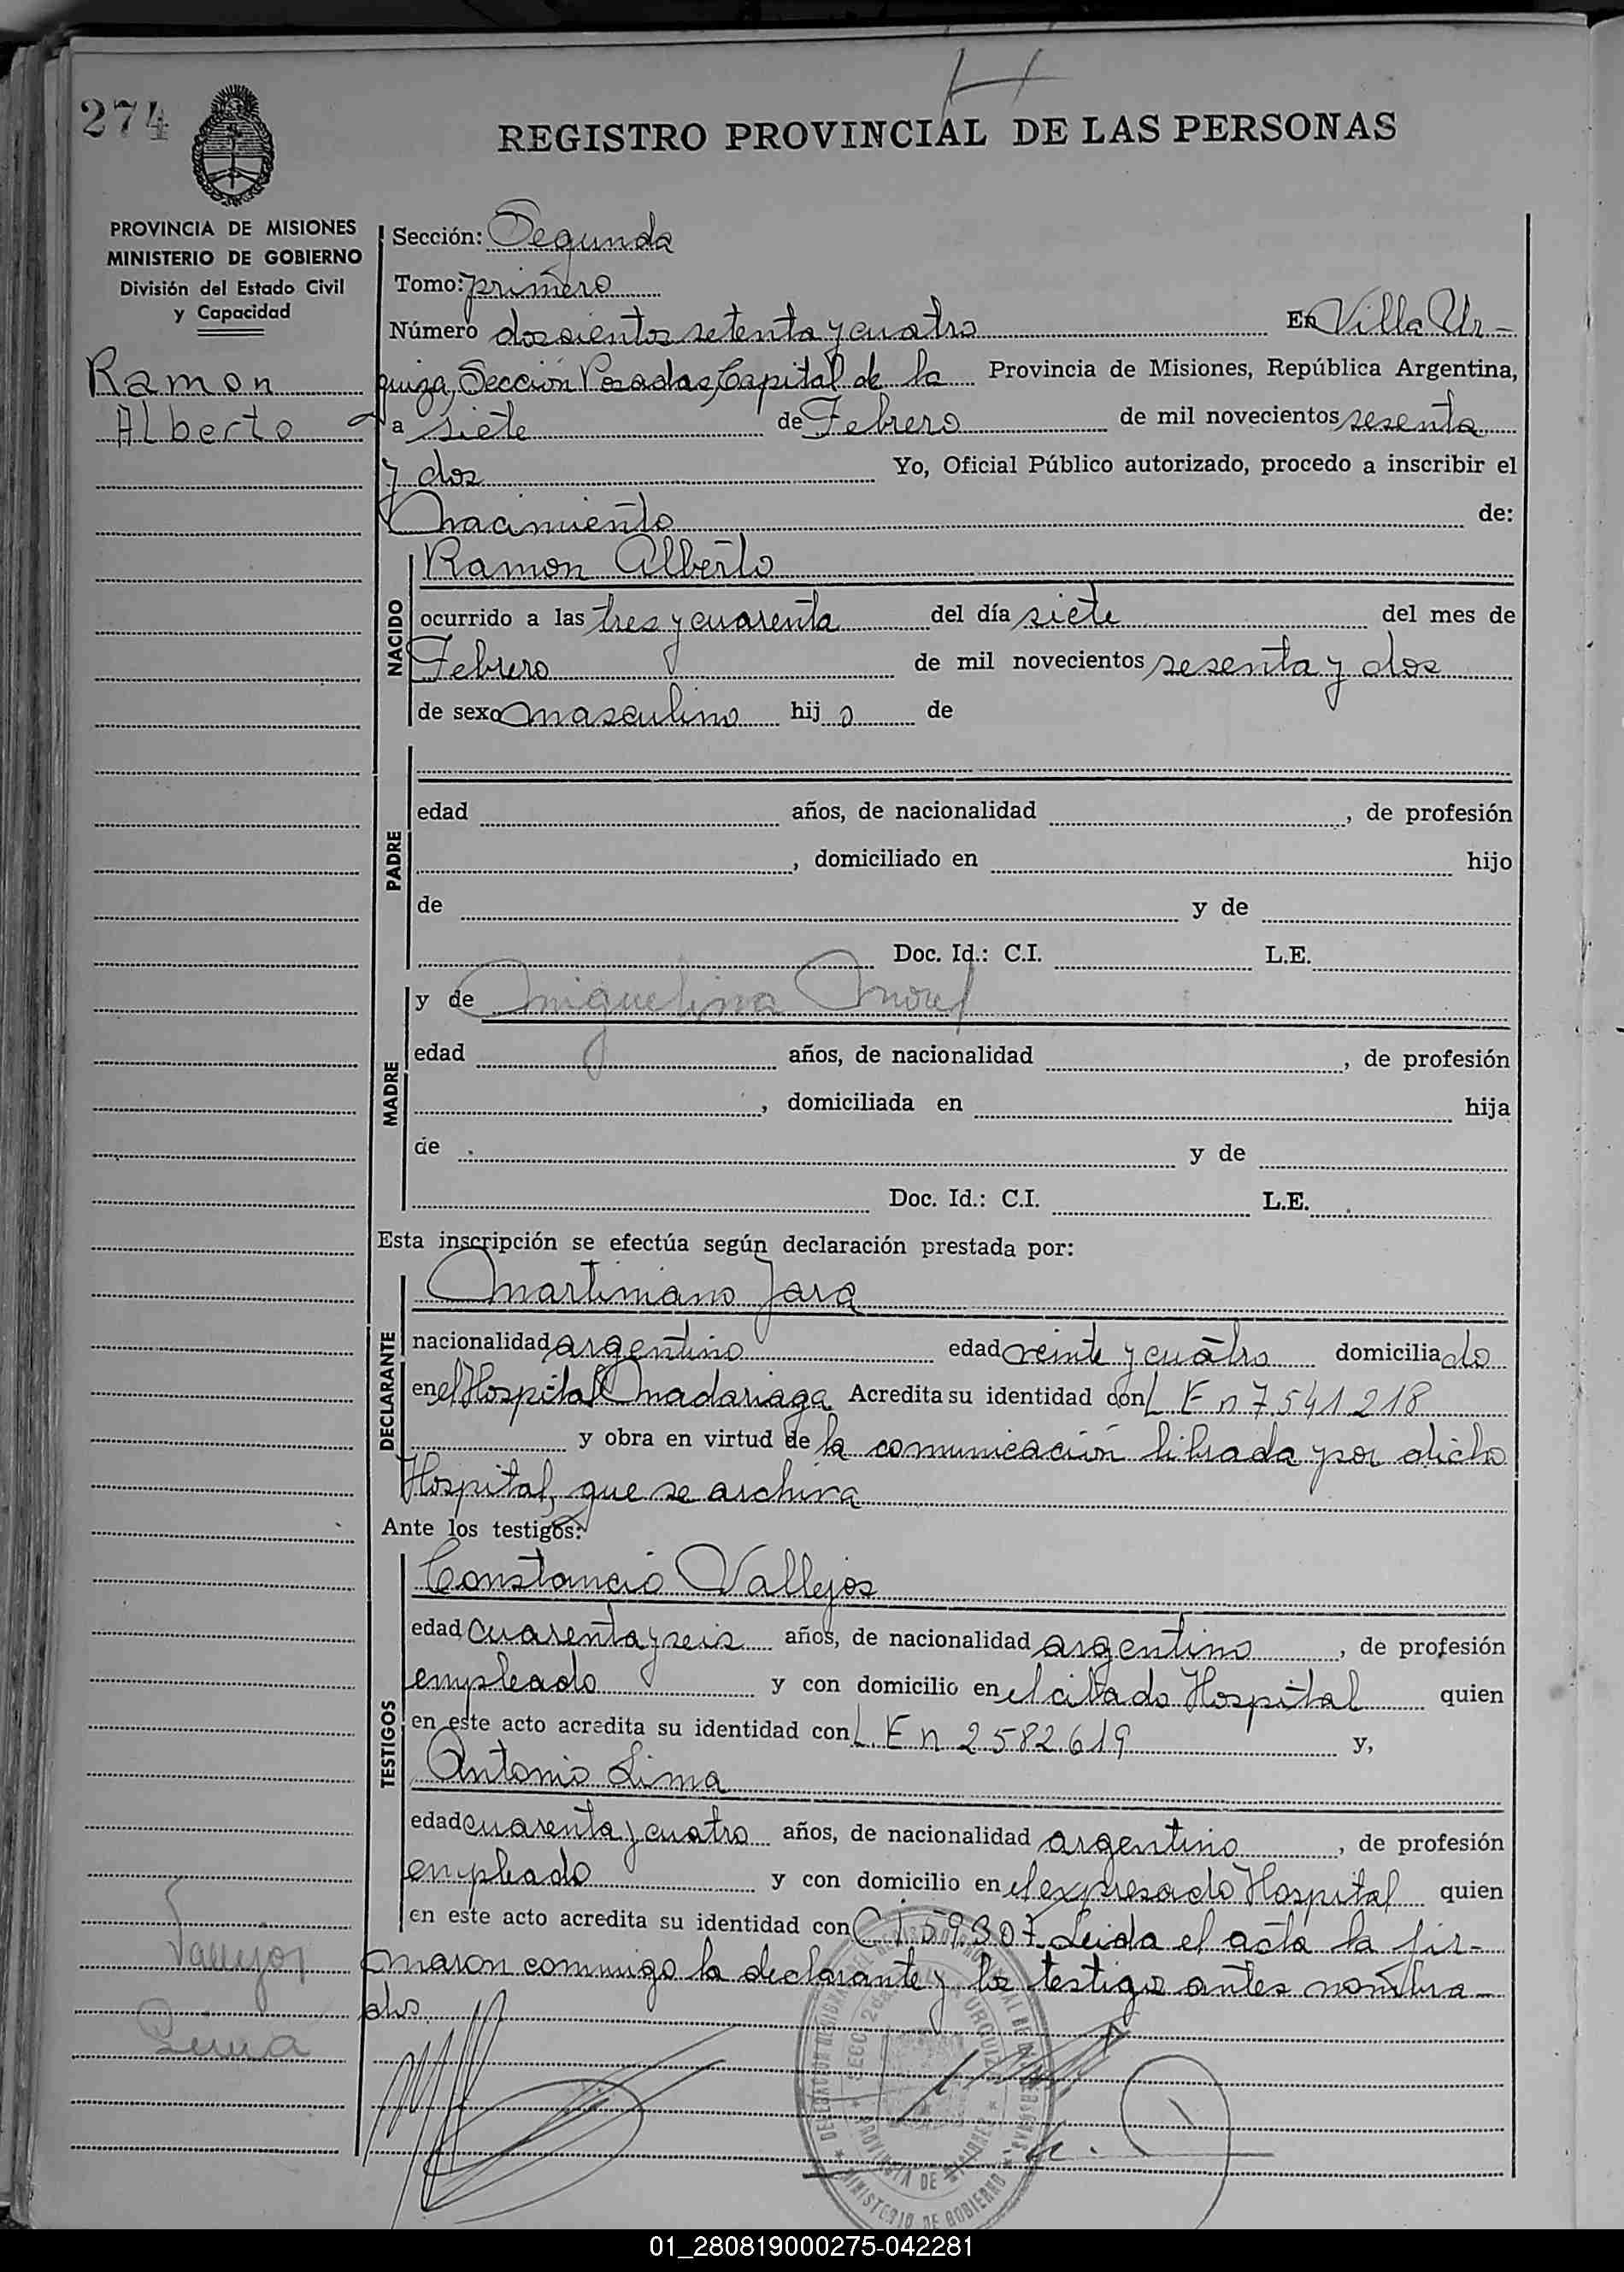 274
REGISTRO PROVINCIAL DE LAS PERSONAS
PROVINCIA DE MISIONES
MINISTERIO DE GOBIERNO
División del Estado Civil
y Capacidad
Ramon
Alberto
Sección: Segunda
Tomo: primero
Número doscientos setenta y cuatro En Villa Ur-
quiza, Sección Posadas, Capital de la Provincia de Misiones, República Argentina,
a siete de Febrero de mil novecientos sesenta
y dos Yo, Oficial Público autorizado, procedo a inscribir el
nacimiento de:
NACIDO
Ramon Alberto
ocurrido a las tres y cuarenta del día siete del mes de
Febrero de mil novecientos sesenta y dos
de sexo masculino hij o de
PADRE
edad años, de nacionalidad , de profesión
, domiciliado en hijo
de y de
Doc. Id.: C.I. L.E.
MADRE
y de Miguelina Morel
edad años, de nacionalidad , de profesión
, domiciliada en hija
de y de
Doc. Id.: C.I. L.E.
Esta inscripción se efectúa según declaración prestada por:
DECLARANTE
Martiniano Jara
nacionalidad argentino edad veinte y cuatro domicilia do
en el Hospital Madariaga Acredita su identidad con L E n 7.541.218
y obra en virtud de la comunicación librada por dicho
Hospital, que se archiva
Ante los testigos:
TESTIGOS
Constancio Vallejos
edad cuarenta y seis años, de nacionalidad argentino , de profesión
empleado y con domicilio en el citado Hospital quien
en este acto acredita su identidad con L. E n 2.582.619 y,
Antonio Lima
edad cuarenta y cuatro años, de nacionalidad argentino , de profesión
empleado y con domicilio en el expresado Hospital quien
en este acto acredita su identidad con C.I. 59.307 Leida el acta la fir-
maron conmigo la declarante y los testigos antes nombra-
dos
Vallejos
Lima
SECC. 2da. URQUIZA
PROVINCIA DE MISIONES
MINISTERIO DE GOBIERNO
01_280819000275-042281